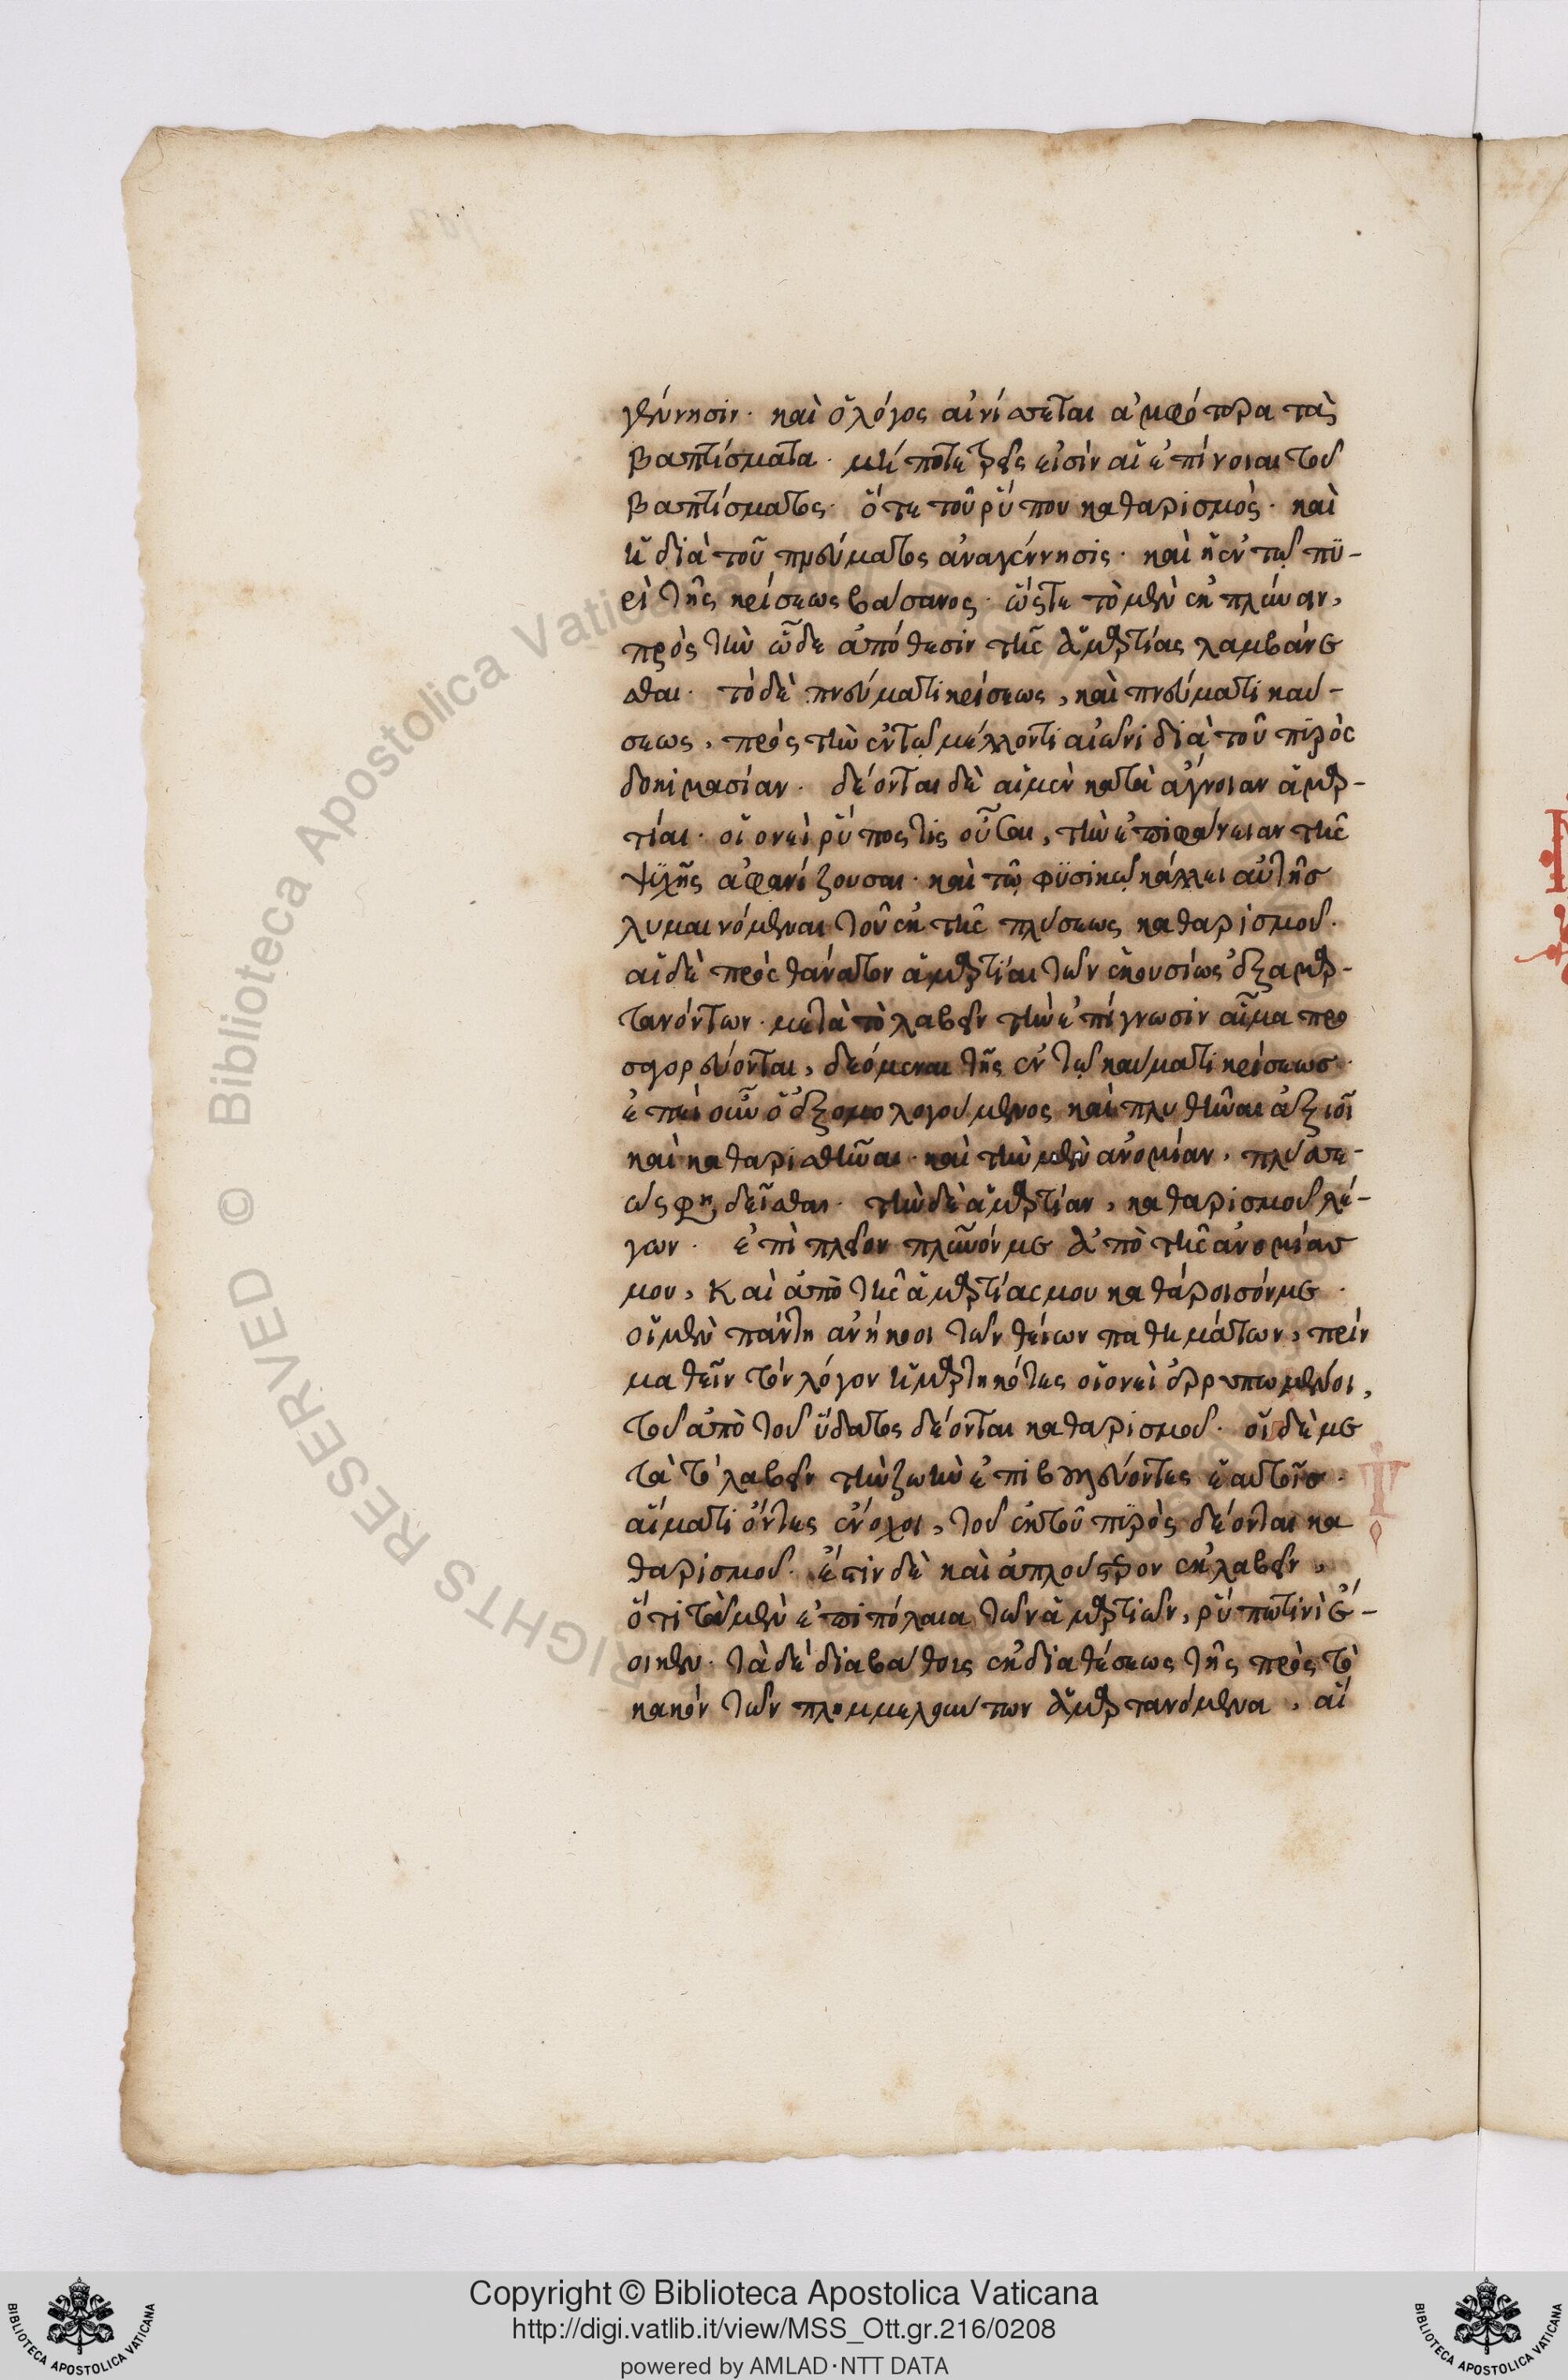 γέννησιν· καὶ ὁ λόγος αἰνίσσεται ἀμφότερα τὰ
βαπτίσματα. μή ποτε τρεῖς εἰσὶν αἱ ἐπίνοιαι τοῦ
βαπτίσματος· ὅ τε τοῦ ῥύπου καθαρισμὸς· καὶ
ἡ διὰ τοῦ πνεύματος ἀναγέννησις· καὶ ἡ ἐν τῷ πυ-
ρὶ τῆς κρίσεως βάσανος· ὥστε τὸ μὲν ἐκπλύναι,
πρὸς τὴν ὧδε ἀπόθεσιν τῆς ἁμαρτίας λαμβάνε
σθαι· τὸ δὲ πνεύματι κρίσεως, καὶ πνεύματι καύ-
σεως, πρὸς τὴν ἐν τῷ μέλλοντι αἰῶνι διὰ τοῦ πυρὸς
δοκιμασίαν. δέονται δὲ αἱ μὲν κατὰ ἄγνοιαν ἁμαρ-
τίαι· οἱονεὶ ῥύπος τις οὖσαι, τὴν ἐπιφάνειαν τῆς
ψυχῆς ἀφανίζουσαι· καὶ τῷ φυσικῷ κάλλει αὐτῆς
λυμαινόμεναι τοῦ ἐκ τῆς πλύσεως καθαρισμοῦ·
αἱ δὲ πρὸς θάνατον ἁμαρτίαι τῶν ἑκουσίως ἐξαμαρ-
τανόντων· μετὰ τὸ λαβεῖν τὴν ἐπίγνωσιν αἷμα προ
σαγορεύονται, δεόμεναι τῆς ἐν τῷ καύματι κρίσεως·
ἐπεὶ οὖν ὁ ἐξομολογούμενος καὶ πλυθῆναι ἀξιοῖ
καὶ καθαρισθῆναι· καὶ τὴν μὲν ἀνομίαν, πλύσε-
ώς φησι δεῖσθαι· τὴν δὲ ἁμαρτίαν, καθαρισμοῦ λέ-
γων· ἐπὶ πλεῖον πλῦνόν με ἀπὸ τῆς ἀνομίας
μου, Καὶ ἀπὸ τῆς ἁμαρτίας μου καθάρισόν με·
οἱ μὲν πάντη ἀνήκοοι τῶν θείων παθημάτων, πρίν
μαθεῖν τὸν λόγον ἡμαρτηκότες οἱονεὶ ἐρρυπωμένοι,
τοῦ ἀπὸ τοῦ ὕδατος δέονται καθαρισμοῦ· οἱ δὲ με
τὰ τὸ λαβεῖν τὴν ζωὴν ἐπιβουλεύοντες ἑαυτοῖς·
αἵματι ὄντες ἔνοχοι, τοῦ ἐκ τοῦ πυρὸς δέονται κα
θαρισμοῦ· ἔστιν δὲ καὶ ἁπλούστερον ἐκλαβεῖν,
ὅτι τὰ μὲν ἐπιπόλαια τῶν ἁμαρτιῶν, ῥύπῳ τινὶ ἔ-
οικεν· τὰ δὲ διὰ βάθους ἐκ διαθέσεως τῆς πρὸς τὸ
κακὸν τῶν ἁμαρτανόμενα, αἵ
Copyright © Biblioteca Apostolica Vaticana
http://digi.vatlib.it/view/MSS_Ott.gr.216/0208
powered by AMLAD·NTT DATA